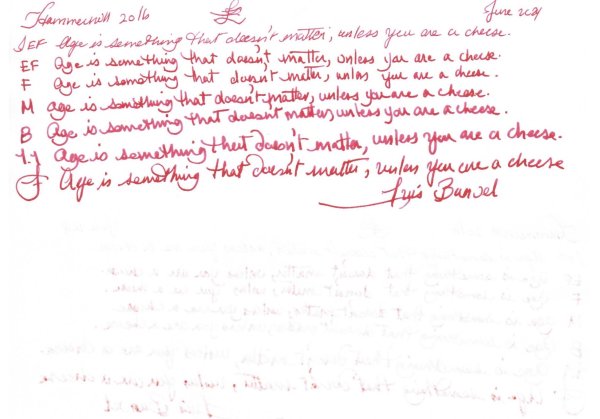 Hammermill 20lb June 2021
JEF Age is something that doesn't matter, unless you are a cheese.
EF Age is something that doesn't matter, unless you are a cheese.
F Age is something that doesn't matter, unless you are a cheese.
M Age is something that doesn't matter, unless you are a cheese.
B Age is something that doesn't matter, unless you are a cheese.
1.1 Age is something that doesn't matter, unless you are a cheese.
Age is something that doesn't matter, unless you are a cheese
Luis Bunuel